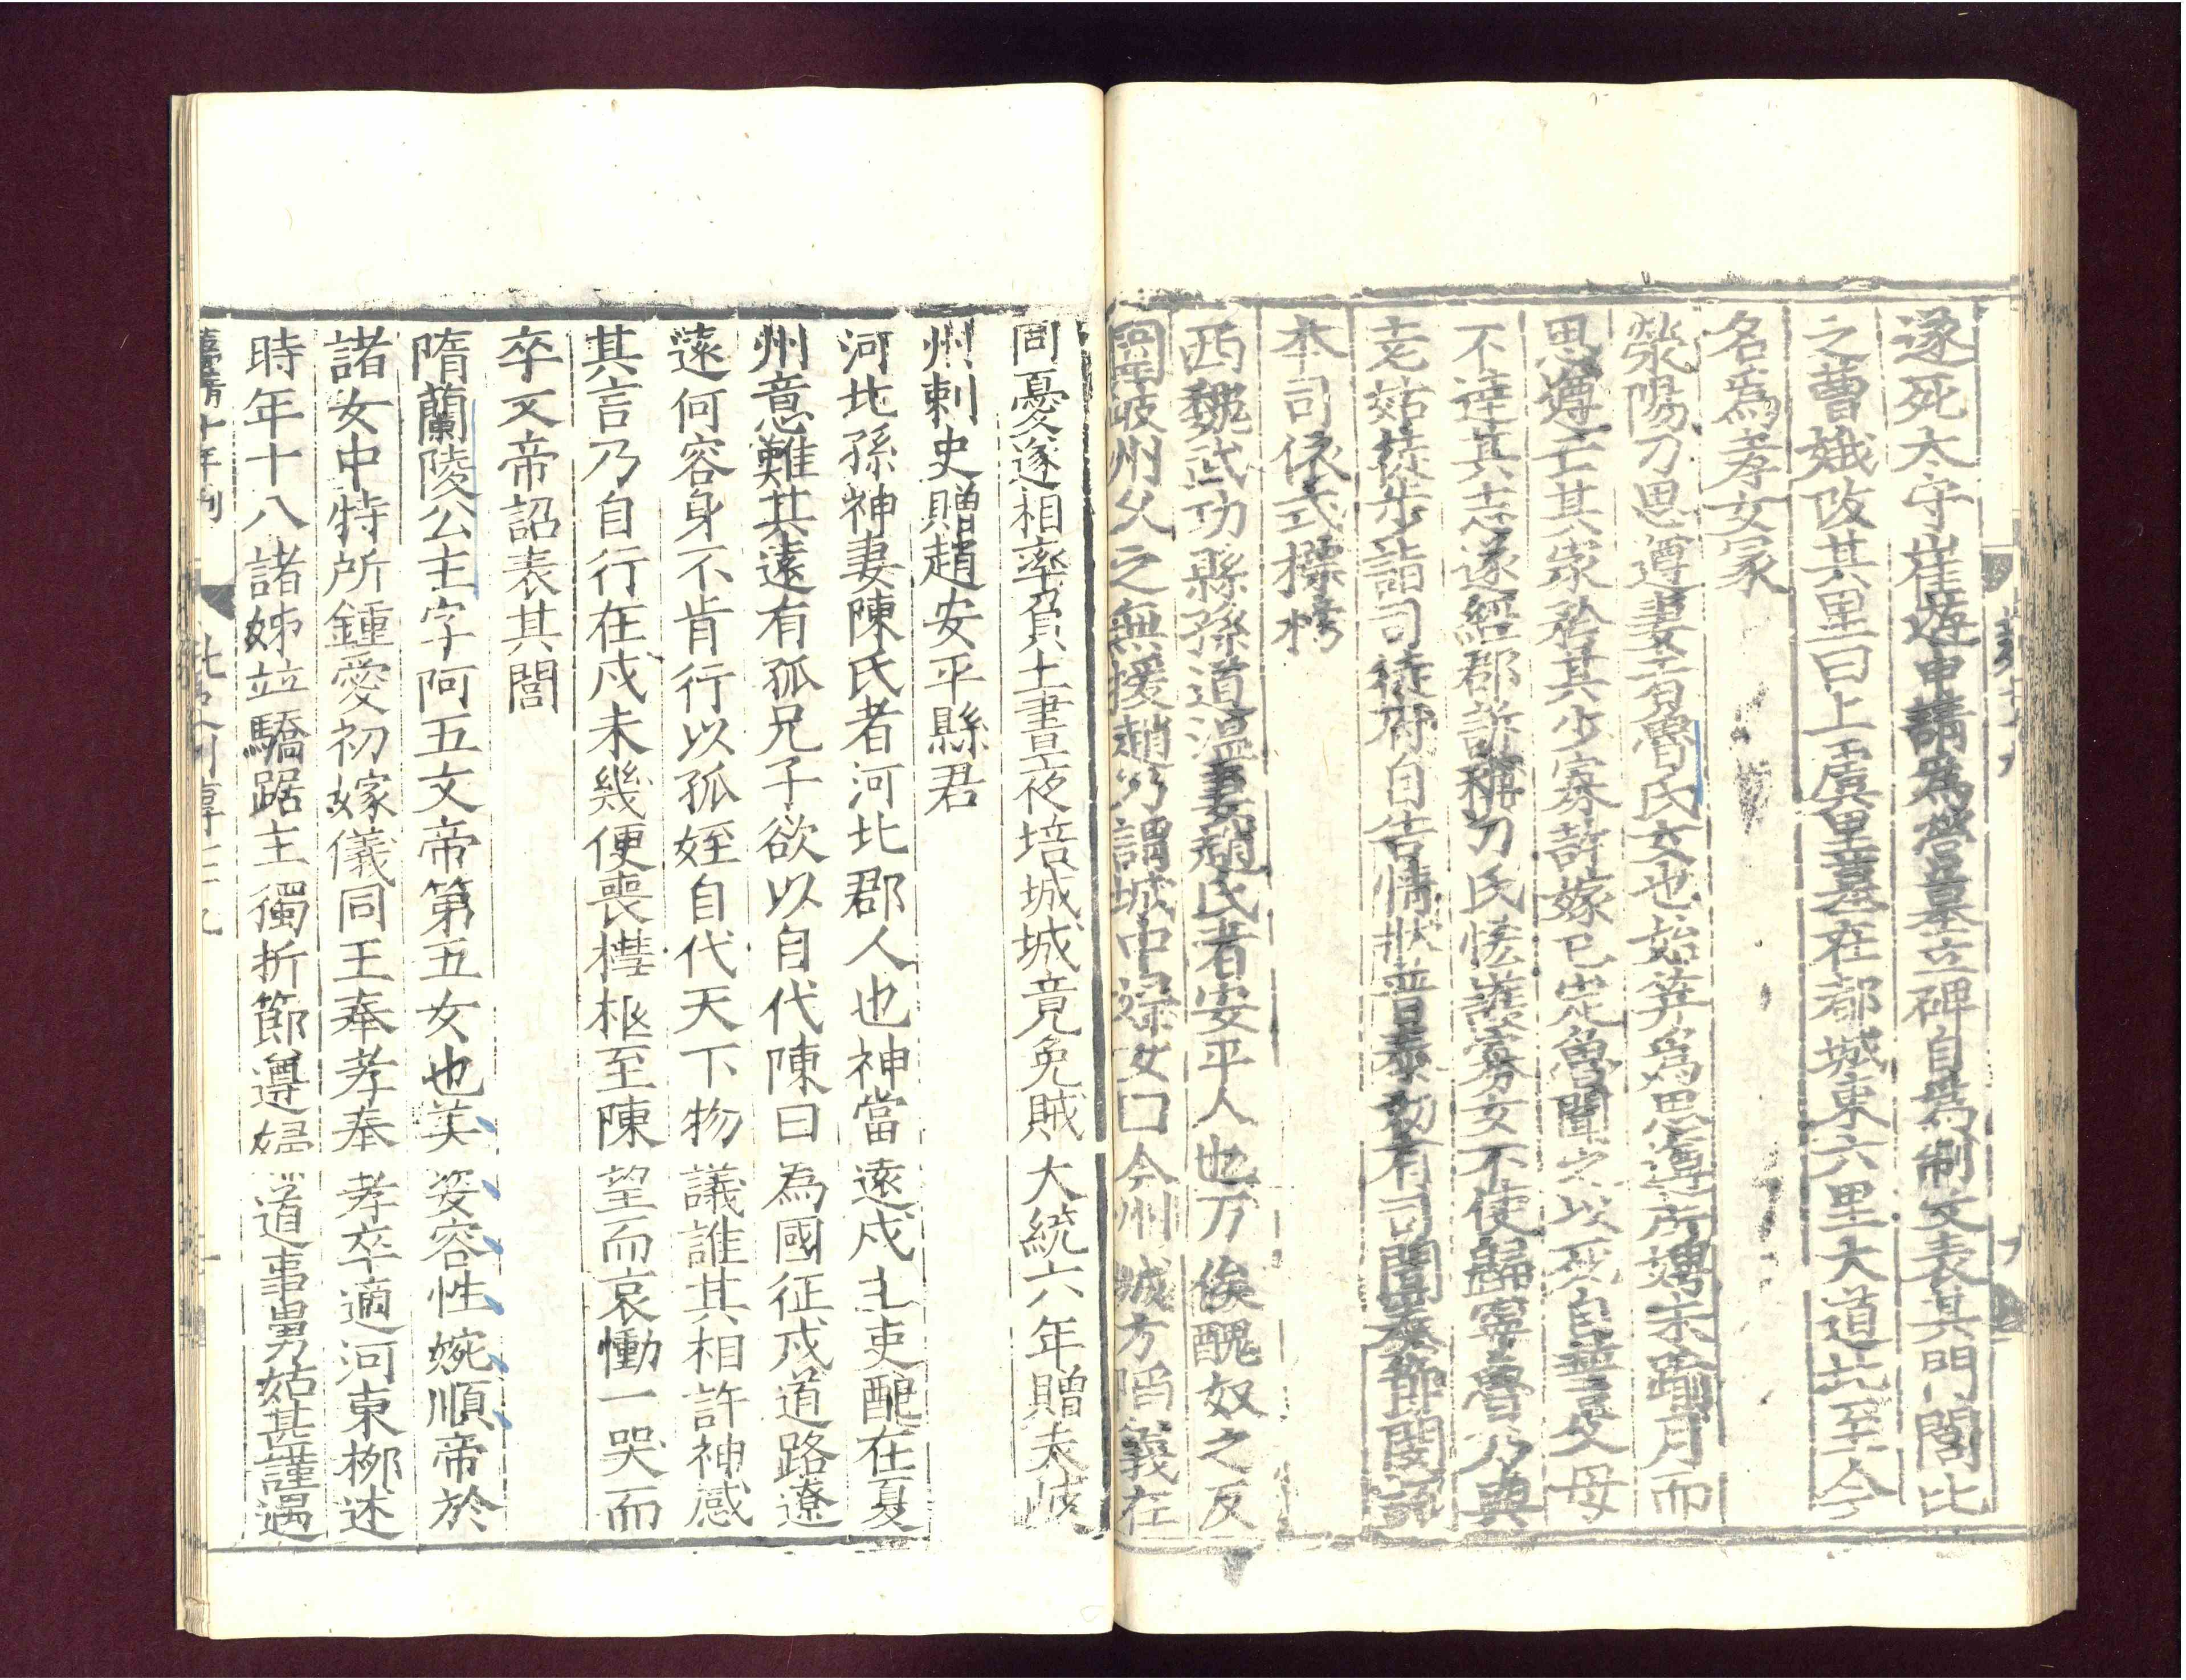 遂死太守崔遊申請爲營墓立碑自爲制文表其門閭比
之曹娥改其里曰上虞里墓在郡城東六里大道北至今
名為孝女冢
滎陽刁思遵妻者魯氏女也始笄爲思遵所娉未踰月而
思遵亡其家矜其少寡許嫁已定魯聞之以死自誓父母
不達其志遂經郡訴稱刁氏恡護寡女不使歸寧魯乃與
老姑徒步詣司徒府自告情狀普泰初有司聞奏節閔詔
本司依式摽榜
西魏武功縣孫道溫妻趙氏者安平人也万俟醜奴之反
圍岐州久之無援趙乃謂城中婦女曰今州城方陷義在
同憂遂相率負土晝夜培城城竟免賊大統六年贈夫岐
州刺史贈趙安平縣君
河北孫神妻陳氏者河北郡人也神當遠戍主吏配在夏
州意難其遠有孤兄子欲以自代陳曰為國征戍道路遼
遠何容身不肯行以孤姪自代天下物議誰其相許神感
其言乃自行在戍未幾便喪槥柩至陳望而哀慟一哭而
卒文帝詔表其閭
隋蘭陵公主字阿五文帝第五女也美姿容性婉順帝於
諸女中特所鍾愛初嫁儀同王奉孝奉孝卒適河東柳述
時年十八諸姊並驕踞主獨折節遵婦道事舅姑甚謹遇